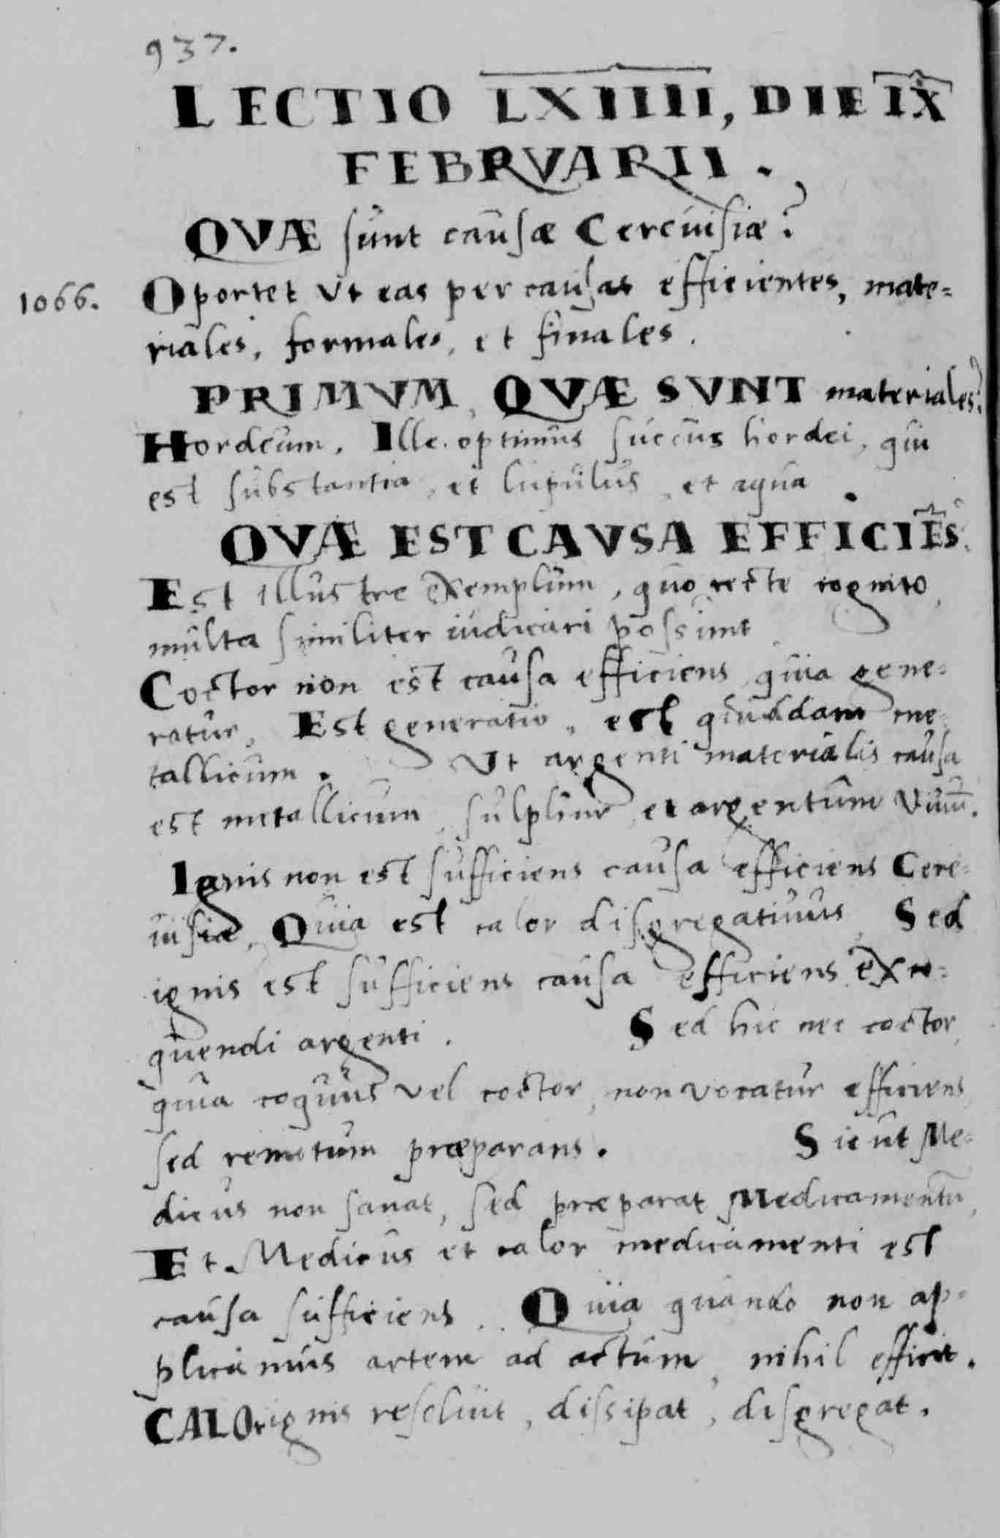 937.
LECTIO LXIIII, DIE IX
FEBRVARII.
QVÆ sunt causæ Cerevisiæ?
1066. Oportet vt eas per causas efficientes, mate=
riales, formales, et finales.
PRIMVM, QVÆ SVNT materiales?
Hordeum. Ille optimus succus hordei, qui
est substantia, et lupulus, et aqua.
QVÆ EST CAVSA EFFICIĒS.
Est illustre exemplum, quo recte cognito,
multa similiter iudicari possunt
Coctor non est causa efficiens, quia gene=
ratur. Est generatio, est quiddam me
tallicum. Vt argenti materialis causa
est metallicum, sulphur et argentum viuū.
Ignis non est sufficiens causa efficiens Cere=
uisiæ, Quia est calor disgregatiuus, Sed
ignis est sufficiens causa efficiens exco=
quendi argenti. Sed hic nec coctor,
quia coquus vel coctor, non vocatur efficiens
sed remotum præparans. Sicut Me=
dicus non sanat, sed præparat Medicamentū,
Et Medicus et calor medicamenti est
causa sufficiens. Quia quando non ap=
plicamus artem ad actum, nihil efficit.
CALOr ignis resoluit, dissipat, disgregat.